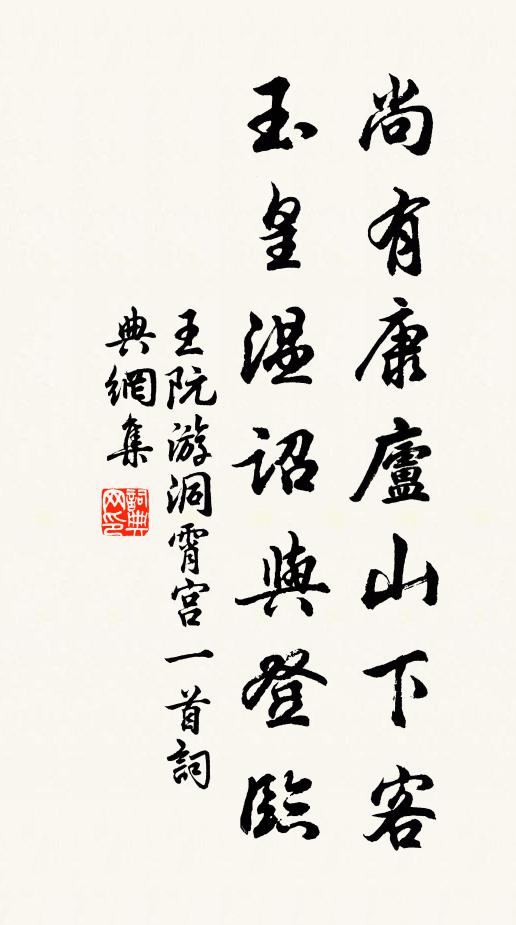 尚有康廬山下客
玉皇溫詔與登臨
王阮游洞霄宮一首詞
典網集
詞典网印